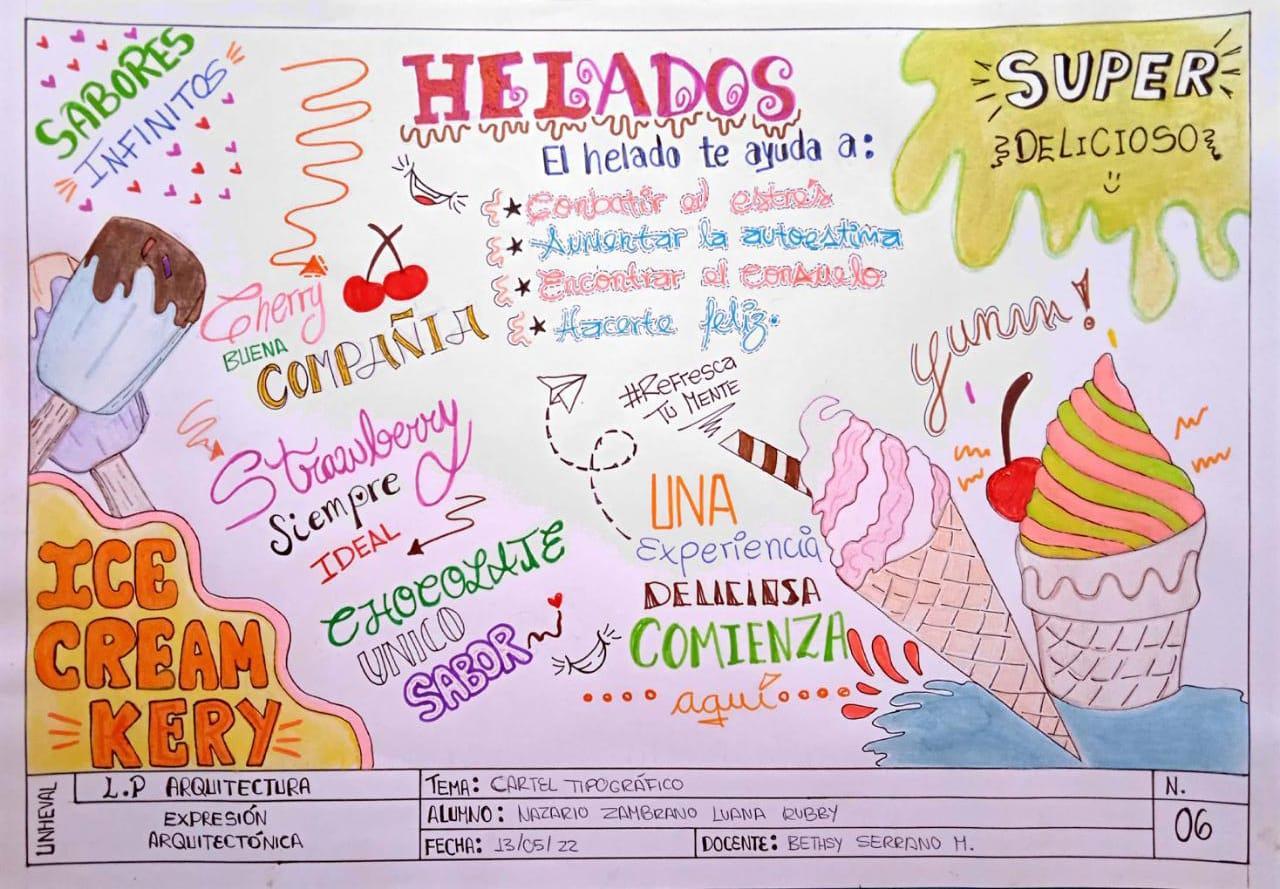 SABORES
INFINITOS
HELADOS
El helado te ayuda a:
★ Conbatir el estrés
★ Aumentar la autoestima
★ Encontrar el consuelo
★ Hacerte feliz.
SUPER
DELICIOSO
Cherry
BUENA
COMPAÑIA
Yumm!
#Refresca
TÚ MENTE
Strawberry
Siempre
IDEAL
CHOCOLATE
UNICO
SABOR
UNA
Experiencia
DELICIOSA
COMIENZA
aquí
ICE
CREAM
KERY
UNHEVAL
L.P ARQUITECTURA
EXPRESIÓN
ARQUITECTÓNICA
TEMA: CARTEL TIPOGRÁFICO
ALUMNO: NAZARIO ZAMBRANO LUANA RUBBY
FECHA: 13/05/22
DOCENTE: BETHSY SERRANO M.
N.
06